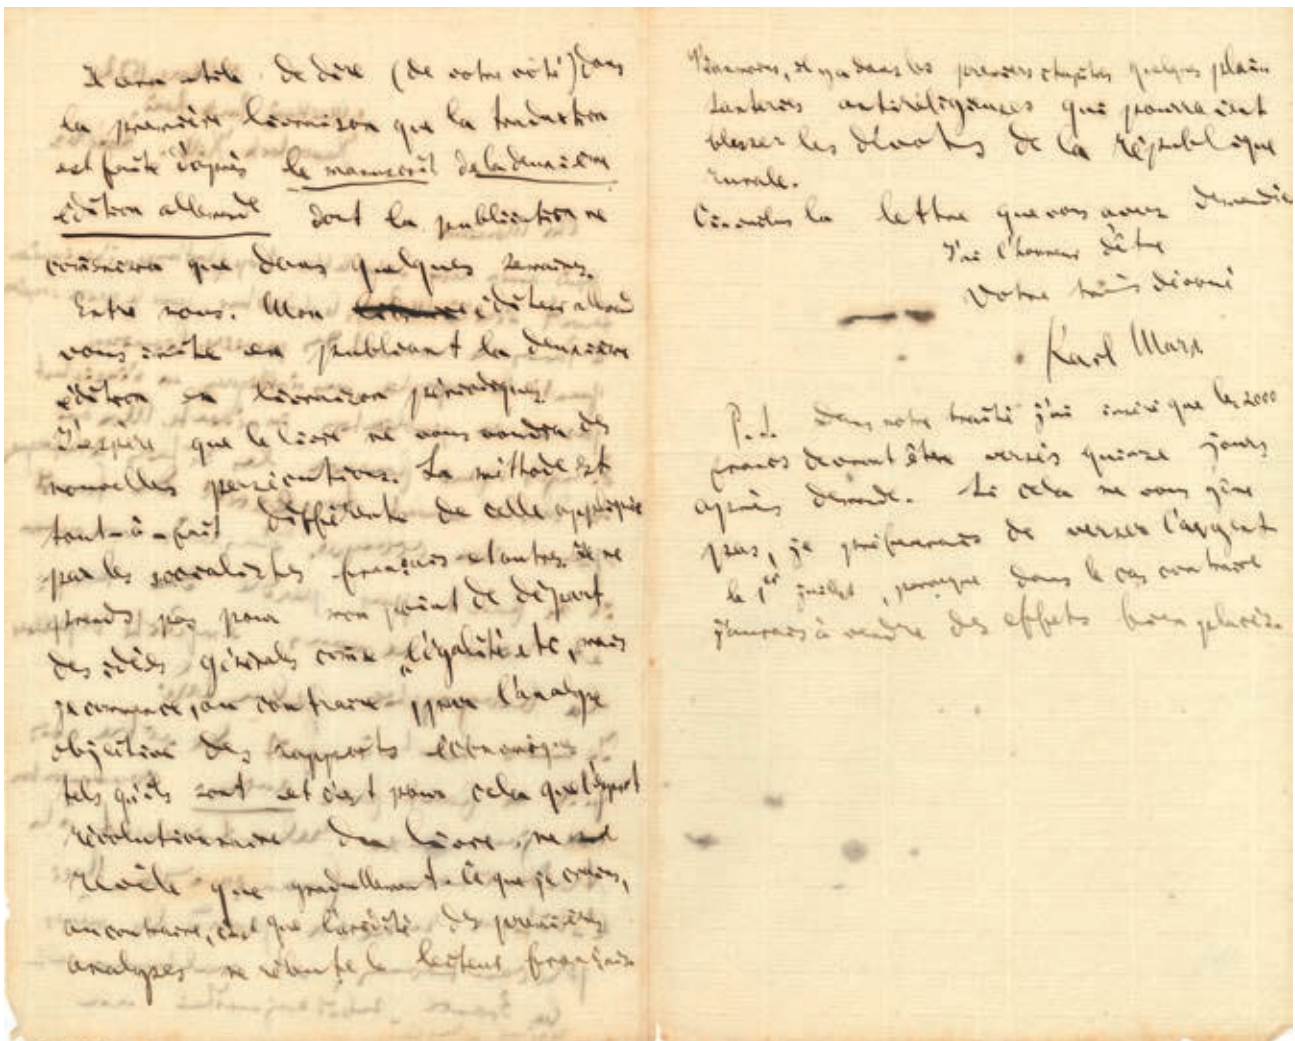 Il sera utile de dire (de votre côté) dans
la première livraison que la traduction
est faite d'après le manuscrit de la deuxième
édition allemande dont la publication ne
commencera que dans quelques semaines.
Entre nous. Mon éditeur allemand
vous imite en publiant la deuxième
édition en livraison périodiques
J'espère que le livre ne vous vaudra des
nouvelles persécutions. La méthode est
tout-à-fait différente de celle appliquée
par les socialistes français et autres. Je ne
prends pas pour mon point de départ
des idées générales comme l'égalité etc, mais
je commence, au contraire, par l'analyse
objective des rapports économiques
tels qu'ils sont et c'est pour cela que l'esprit
révolutionnaire du livre ne se
révèle que graduellement. Ce que je crains,
au contraire, c'est que l'aridité des premières
analyses ne rebute le lecteur français
il y a dans les premiers chapitres quelques plai-
santeries antireligieuses qui pourraient
blesser les dévots de la république
rurale.
Ci-inclus la lettre que vous avez demandée
J'ai l'honneur d'être
Votre très dévoué
Karl Marx
P.S. Dans notre traité j'ai inséré que les 2000
francs devront être versés quinze jours
après demande. Si cela ne vous gêne
pas, je préférerais de verser l'argent
le 1er juillet, parceque dans le cas contraire
j'aurais à vendre des effets bien placés.